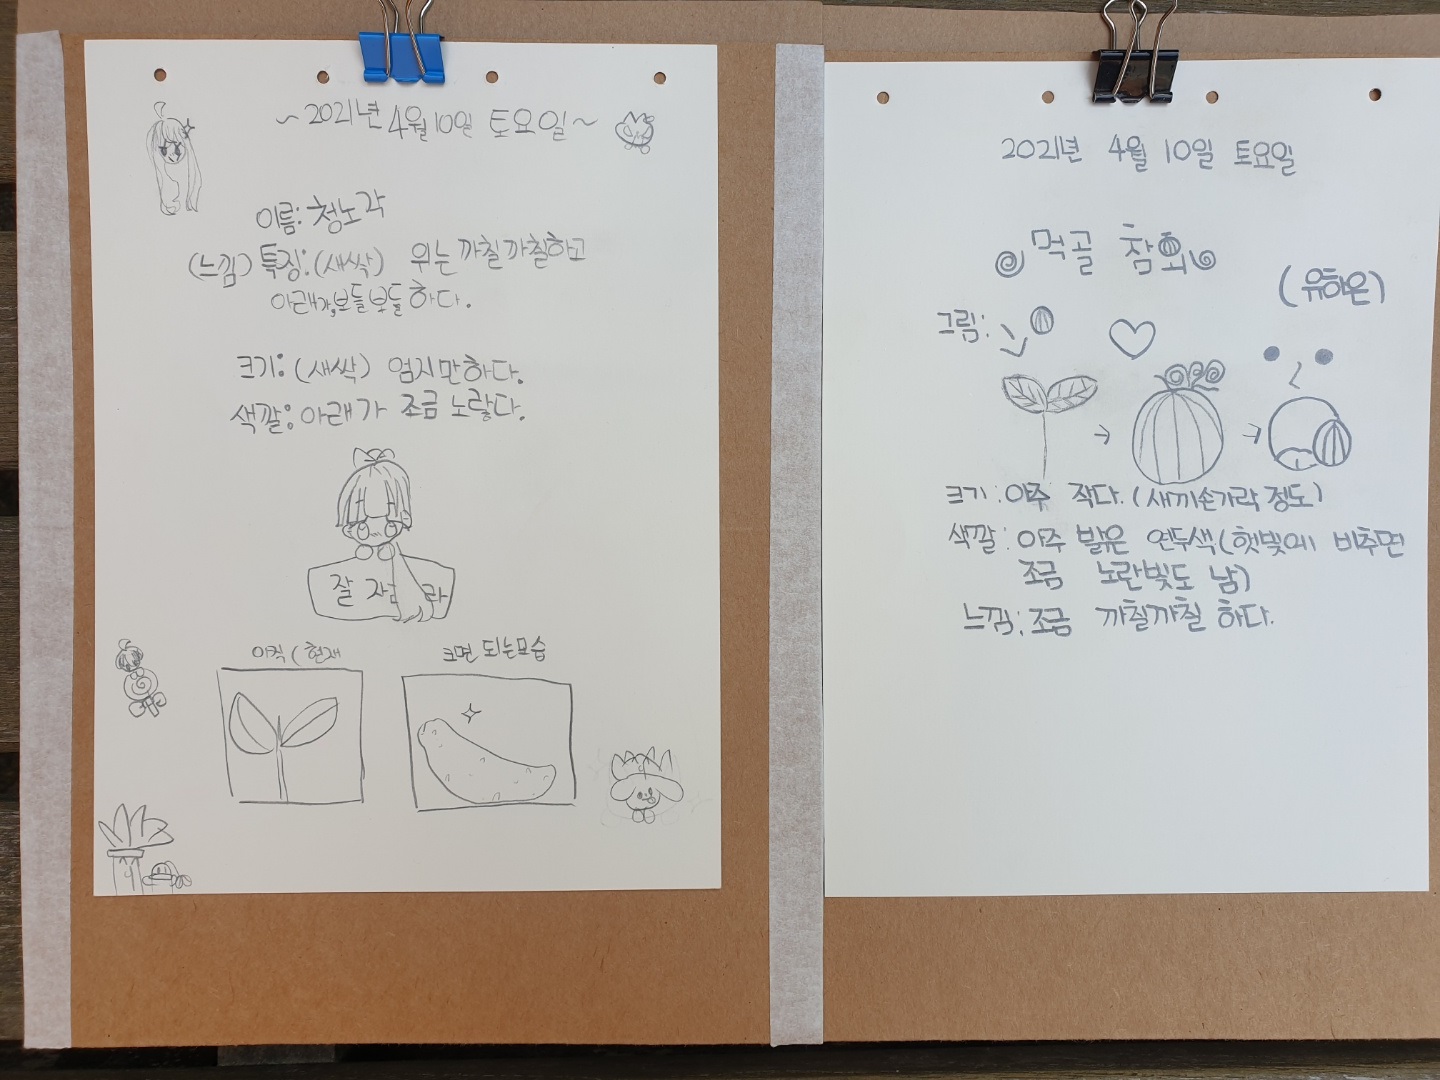 ~2021년 4월 10일 토요일~
이름: 청노각
(느낌) 특징:(새싹) 위는 까칠까칠하고
아래가 보들보들하다.
크기: (새싹) 엄지만하다.
색깔: 아래가 조금 노랗다.
잘 자 라
현재
크면 되는모습
2021년 4월 10일 토요일
먹골 참외
(유하은)
그림:
크기: 아주 작다. (새끼손가락 정도)
색깔: 아주 밝은 연두색(햇빛에 비추면
조금 노란빛도 남)
느낌: 조금 까칠까칠 하다.